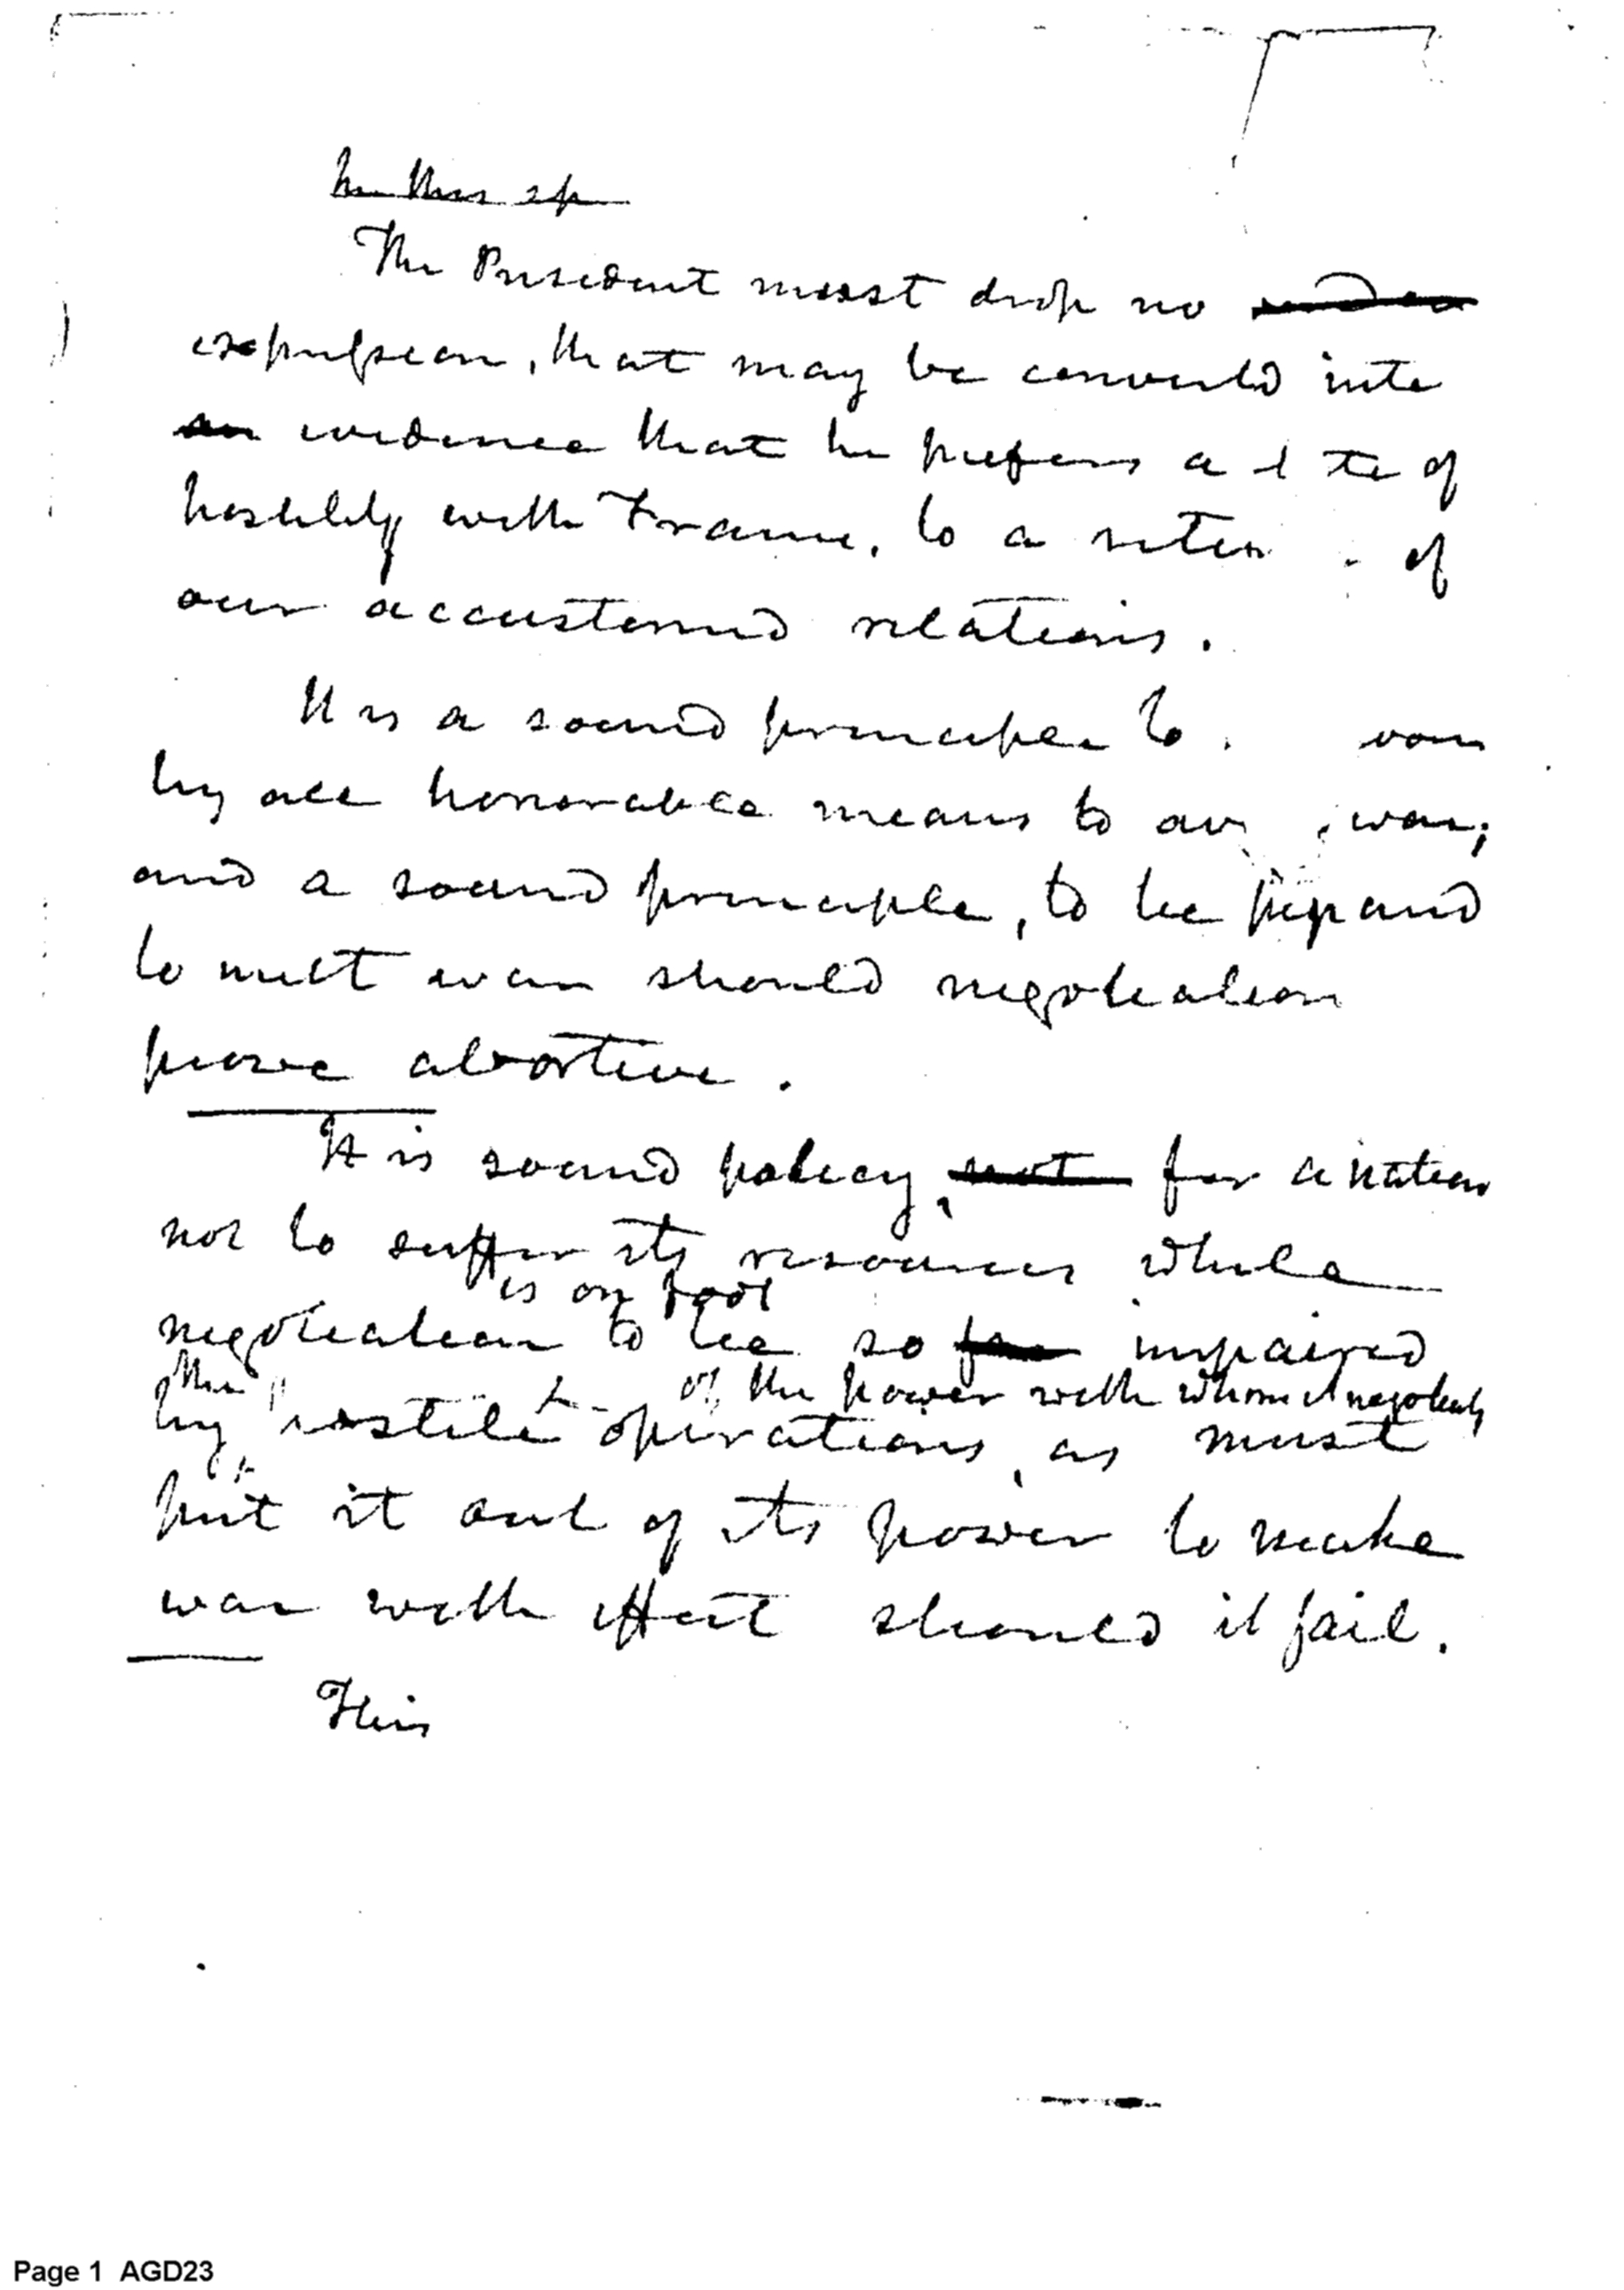 In this sp
The President must drop no
expression, that may be converted into
an evidence that he prefers a te of
hostility with France, to a of
our accustomed relations.
It is a sound principle to
by all honorable means to av war;
and a sound principle, to be prepared
to meet war should negotiation
prove abortive.
It is sound policy, not for a nation
not to suffer its resources while
is on foot
negotiation to be so far impaired
the of the power with whom it negotiates
by hostile operations, as must
put it out of its power to make
war with effect should it fail.
This
Page 1 AGD23